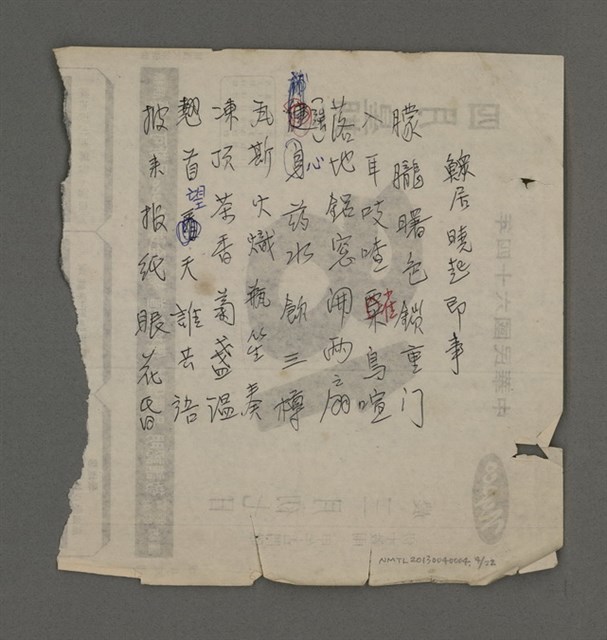 鰥居曉起即事
朦朧曙色鎖重门
入耳吱喳雀鳥喧
落地鋁窓開両扇
强心
健身药水飲三樽
瓦斯火熾瓶笙奏
凍頂茶香菊盞温
翹首望天誰共語
披来报纸眼花昏
中華民國六十四年
NMTL20130040004, 9/22